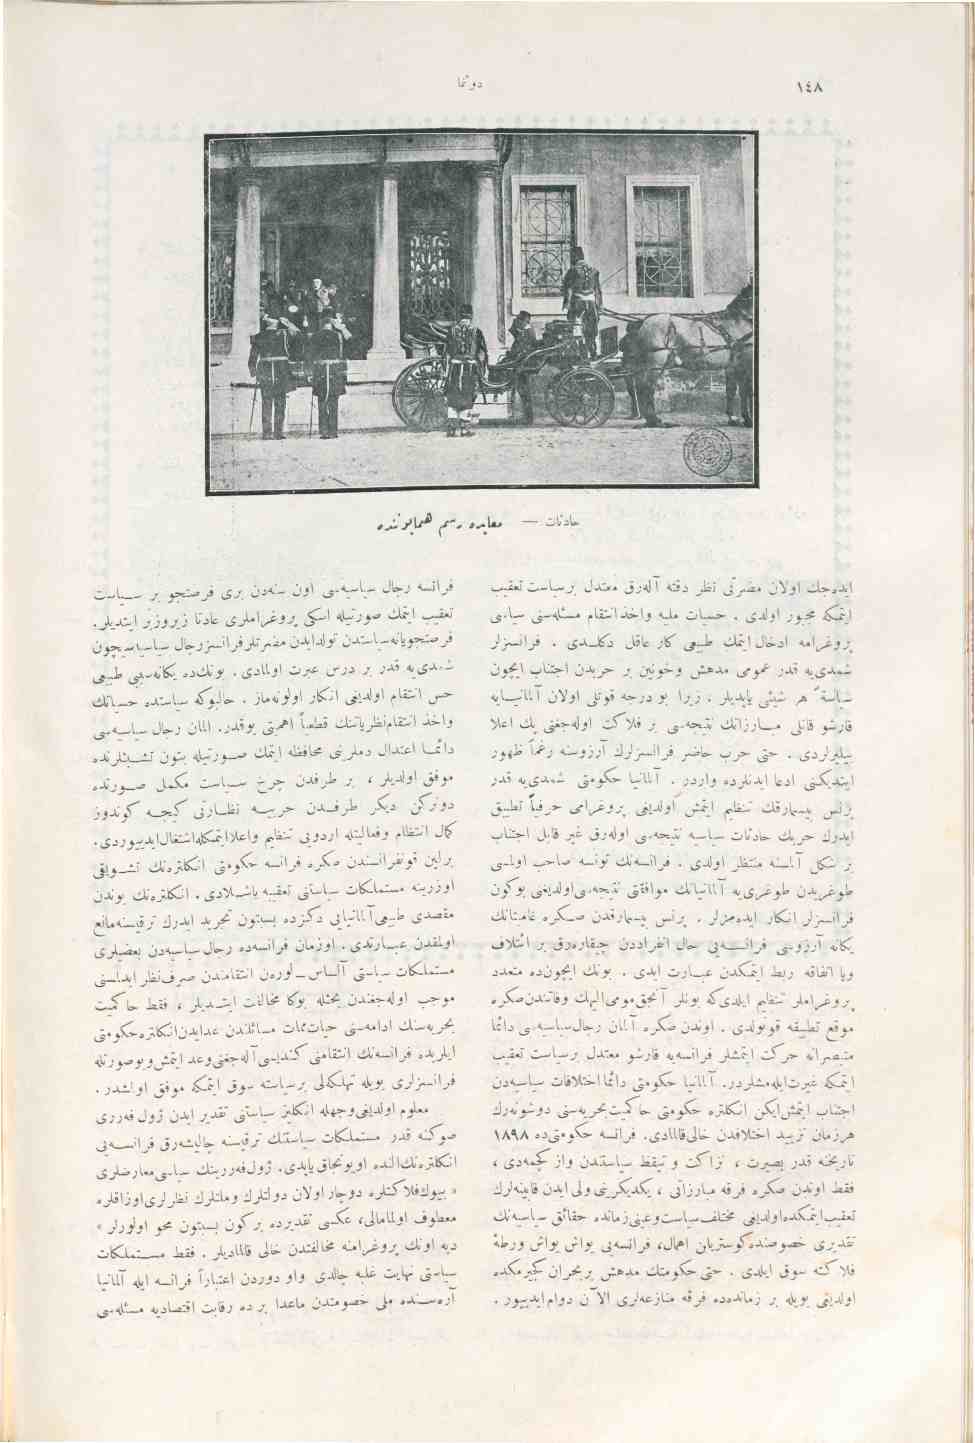 ١٤٨
دوننما
حادثات — معايده رسم همايوننده
ايده‌جك اولان مضرتى نظر دقته آله‌رق معتدل برسياست تعقيب
ايتمكه مجبور اولدى . حسيات مليه واخذ انتقام مسئله‌سنى سياسى
پروغرامه ادخال ايتمك طبيعى كار عاقل دكلدى . فرانسزلر
شمدى‌يه قدر عمومى مدهش وخونين بر حربدن اجتناب ايچون
سياسةً هر شيئى ياپديلر . زيرا بو درجه قوتلى اولان آلمانيايه
قارشو قانلى مبارزانك نتيجه‌سى بر فلاكت اوله‌جغنى پك اعلا
بيليورلردى . حتى حرب حاضر فرانسزلرك آرزوسنه رغماً ظهور
ايتديكنى ادعا ايدنلرده واردر . آلمانيا حكومتى شمدى‌يه قدر
پرنس بيسمارقك تنظيم ايتمش اولديغى پروغرامى حرفياً تطبيق
ايدرك حربك حادثات سياسيه نتيجه‌سى اوله‌رق غير قابل اجتناب
بر شكل آلمسنه منتظر اولدى . فرانسه‌نك تونسه صاحب اولمسى
طوغريدن طوغرى‌يه آلمانيانك موافقتى نتيجه‌سى اولديغنى بوكون
فرانسزلر انكار ايده‌مزلر . پرنس بيسمارقدن صكره خلفاتنك
يكانه آرزوسى فرانسه‌يى حال انفراددن چيقاره‌رق بر ائتلاف
ويا اتفاقه ربط ايتمكدن عبارت ايدى . بونك ايچون‌ده متعدد
پروغراملر تنظيم ايلدى‌كه بونلر آنجق مومى‌اليهك وفاتندن صكره
موقع تطبيقه قونولدى . اوندن صكره آلمان رجال سياسيه‌سى دائما
متبصرانه حركت ايتمشلر فرانسه‌يه قارشو معتدل برسياست تعقيب
ايتمكه غيرت ايله‌مشلردر . آلمانيا حكومتى دائما اختلافات سياسيه‌دن
اجتناب ايتمش ايكن انكلتره حكومتى حاكميت بحريه‌سنى دوشونه‌رك
هرزمان تزييد اختلافدن خالى قالمادى . فرانسه حكومتى‌ده ١٨٩٨
تاريخنه قدر بصيرت ، نزاكت و تيقظ سياستندن واز كچمه‌دى ،
فقط اوندن صكره فرقه مبارزاتى ، يكديكرينى ولى ايدن قابينه‌لرك
تعقيب ايتمكده اولديغى مختلف سياست وعينى زمانده حقائق سياسيه‌نك
تقديرى خصوصنده كوستريلن اهمال ، فرانسه‌يى يواش يواش ورطهٔ
فلاكته سوق ايلدى . حتى حكومتك مدهش بر بحران كچيرمكده
اولديغى بويله بر زمانده‌ده فرقه منازعه‌لرى الآن دوام ايدييور .
فرانسه رجال سياسيه‌سى اون سنه‌دن برى فرصتجو بر سياست
تعقيب ايتمك صورتيله اسكى پروغراملرى عادتا زيروزبر ايتديلر .
فرصتجويانه سياستدن تولد ايدن مضرتلر فرانسز رجال سياسيه‌سيچون
شمدى‌يه قدر بر درس عبرت اولمادى . بونك‌ده يكانه سببى طبيعى
حس انتقام اولديغى انكار اولونه‌ماز . حالبوكه سياستده حسياتك
واخذ انتقام نظرياتنك قطعاً اهميتى يوقدر . آلمان رجال سياسيه‌سى
دائما اعتدال دملرينى محافظه ايتمك صورتيله بتون تشبثلرنده
موفق اولديلر ، بر طرفدن چرخ سياست مكمل صورتده
دونركن ديكر طرفدن حربيه نظارتى كيجه كوندوز
كمال انتظام وفعاليتله اردويى تنظيم واعلا ايتمكله اشتغال ايدييوردى .
برلين قونفرانسندن صكره فرانسه حكومتى انكلتره‌نك تشويقى
اوزرينه مستملكات سياستنى تعقيبه باشلادى . انكلتره‌نك بوندن
مقصدى طبيعى آلمانيايى دكزده بسبتون تجريد ايدرك ترقيسنه مانع
اولمقدن عبارتدى . اوزمان فرانسه‌ده رجال سياسيه‌دن بعضيلرى
مستملكات سياستى آلساس ـ لورەن انتقامندن صرف نظر ايدلمسنى
موجب اوله‌جغندن بحثله بوكا مخالفت ايتديلر ، فقط حاكميت
بحريه‌سنك ادامه‌سنى حيات‌ممات مسائلندن عد ايدن انكلتره حكومتى
ايلريده فرانسه‌نك انتقامنى كنديسى آله‌جغنى وعد ايتمش وبوصورتله
فرانسزلرى بويله تهلكه‌لى برسياسته سوق ايتمكه موفق اولمشدر .
معلوم اولديغى وجهله انكليز سياستنى تقدير ايدن ژول فه‌ررى
صوكنه قدر مستملكات سياستنك ترقيسنه چاليشه‌رق فرانسه‌يى
انكلتره‌نك النده اويونجاق ياپدى . ژول فه‌ررينك سياسى معارضلرى
« بيوك فلاكتلره دوچار اولان دولتلرك وملتلرك نظرلرى اوزاقلره
معطوف اولمامالى ، عكسى تقديرده بر كون بسبتون محو اولورلر »
ديه اونك پروغرامنه مخالفتدن خالى قالماديلر . فقط مستملكات
سياستى نهايت غلبه چالدى واو دوردن اعتباراً فرانسه ايله آلمانيا
آره‌سنده ملى خصومتدن ماعدا بر ده رقابت اقتصاديه مسئله‌سى